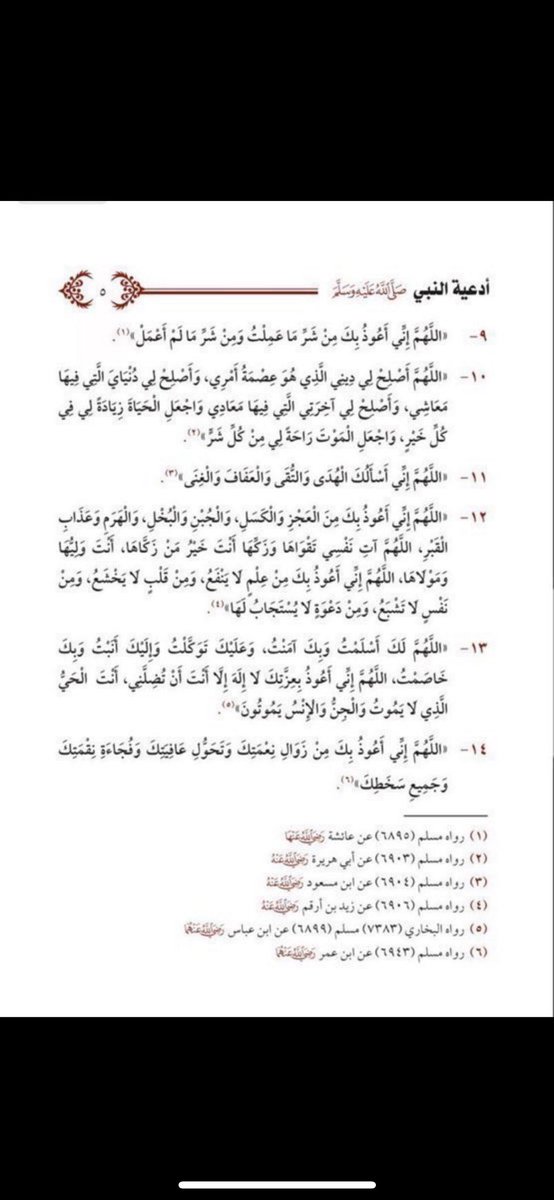 أدعية النبي صَلَّى اللَّهُ عَلَيْهِ وَسَلَّمَ ٥
٩- «اللَّهُمَّ إِنِّي أَعُوذُ بِكَ مِنْ شَرِّ مَا عَمِلْتُ وَمِنْ شَرِّ مَا لَمْ أَعْمَلْ»(١).
١٠- «اللَّهُمَّ أَصْلِحْ لِي دِينِي الَّذِي هُوَ عِصْمَةُ أَمْرِي، وَأَصْلِحْ لِي دُنْيَايَ الَّتِي فِيهَا
مَعَاشِي، وَأَصْلِحْ لِي آخِرَتِي الَّتِي فِيهَا مَعَادِي وَاجْعَلِ الْحَيَاةَ زِيَادَةً لِي فِي
كُلِّ خَيْرٍ، وَاجْعَلِ الْمَوْتَ رَاحَةً لِي مِنْ كُلِّ شَرٍّ»(٢).
١١- «اللَّهُمَّ إِنِّي أَسْأَلُكَ الْهُدَى وَالتُّقَى وَالْعَفَافَ وَالْغِنَى»(٣).
١٢- «اللَّهُمَّ إِنِّي أَعُوذُ بِكَ مِنَ الْعَجْزِ وَالْكَسَلِ، وَالْجُبْنِ وَالْبُخْلِ، وَالْهَرَمِ وَعَذَابِ
الْقَبْرِ، اللَّهُمَّ آتِ نَفْسِي تَقْوَاهَا وَزَكِّهَا أَنْتَ خَيْرُ مَنْ زَكَّاهَا، أَنْتَ وَلِيُّهَا
وَمَوْلَاهَا، اللَّهُمَّ إِنِّي أَعُوذُ بِكَ مِنْ عِلْمٍ لَا يَنْفَعُ، وَمِنْ قَلْبٍ لَا يَخْشَعُ، وَمِنْ
نَفْسٍ لَا تَشْبَعُ، وَمِنْ دَعْوَةٍ لَا يُسْتَجَابُ لَهَا»(٤).
١٣- «اللَّهُمَّ لَكَ أَسْلَمْتُ وَبِكَ آمَنْتُ، وَعَلَيْكَ تَوَكَّلْتُ وَإِلَيْكَ أَنَبْتُ وَبِكَ
خَاصَمْتُ، اللَّهُمَّ إِنِّي أَعُوذُ بِعِزَّتِكَ لَا إِلَهَ إِلَّا أَنْتَ أَنْ تُضِلَّنِي، أَنْتَ الْحَيُّ
الَّذِي لَا يَمُوتُ وَالْجِنُّ وَالْإِنْسُ يَمُوتُونَ»(٥).
١٤- «اللَّهُمَّ إِنِّي أَعُوذُ بِكَ مِنْ زَوَالِ نِعْمَتِكَ وَتَحَوُّلِ عَافِيَتِكَ وَفُجَاءَةِ نِقْمَتِكَ
وَجَمِيعِ سَخَطِكَ»(٦).
(١) رواه مسلم (٦٨٩٥) عن عائشة رَضِيَ اللَّهُ عَنْهَا
(٢) رواه مسلم (٦٩٠٣) عن أبي هريرة رَضِيَ اللَّهُ عَنْهُ
(٣) رواه مسلم (٦٩٠٤) عن ابن مسعود رَضِيَ اللَّهُ عَنْهُ
(٤) رواه مسلم (٦٩٠٦) عن زيد بن أرقم رَضِيَ اللَّهُ عَنْهُ
(٥) رواه البخاري (٧٣٨٣) مسلم (٦٨٩٩) عن ابن عباس رَضِيَ اللَّهُ عَنْهُمَا
(٦) رواه مسلم (٦٩٤٣) عن ابن عمر رَضِيَ اللَّهُ عَنْهُمَا